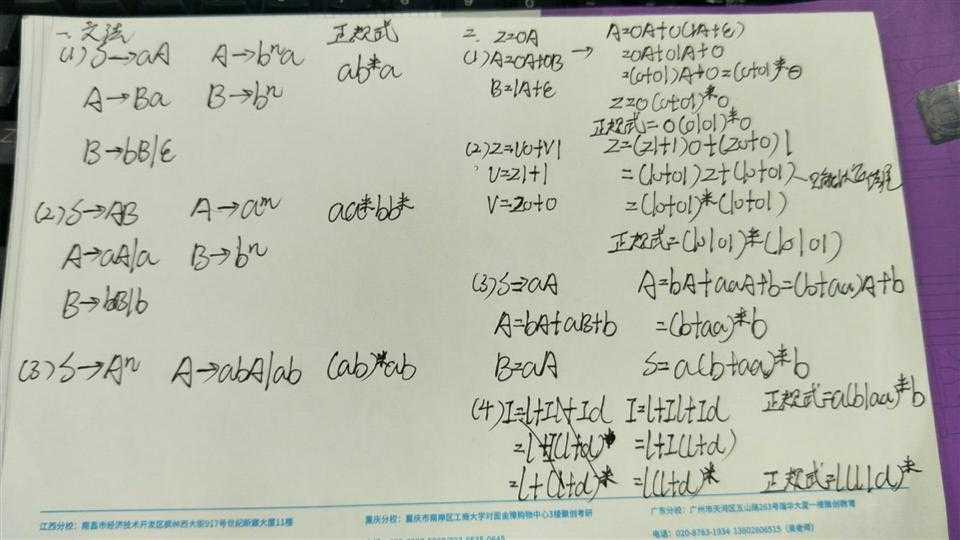 一、文法 正规式
(1) S→aA A→bⁿa ab*a
A→Ba B→bⁿ
B→bB|ε
(2) S→AB A→aⁿ aa*bb*
A→aA|a B→bⁿ
B→bB|b
(3) S→Aⁿ A→abA|ab (ab)*ab
二、Z=0A A=0A+0(1A+ε)
(1) A=0A+0B → =0A+01A+0
B=1A+ε =(0+01)A+0=(0+01)*0
Z=0(0+01)*0
正规式=0(0|01)*0
(2) Z=U0+V1 Z=(Z1+1)0+(Z0+0)1
U=Z1+1 =(10+01)Z+(10+01)
V=Z0+0 =(10+01)*(10+01)
正规式=(10|01)*(10|01)
(3) S=aA A=bA+aaA+b=(b+aa)A+b
A=bA+aB+b =(b+aa)*b
B=aA S=a(b+aa)*b
正规式=a(b|aa)*b
(4) I=l+Il+Id I=l+Il+Id
=l+I(l+d)* =l+I(l+d)
=l+(l+d)* =l(l+d)* 正规式=l(l|d)*
江西分校：南昌市经济技术开发区枫林西大街917号世纪新宸大厦11楼
重庆分校：重庆市南岸区工商大学对面金臻购物中心3楼聚创考研
广东分校：广州市天河区五山路263号瑞华大厦一楼聚创教育
电话：020-8763-1934 13602606515（吴老师）